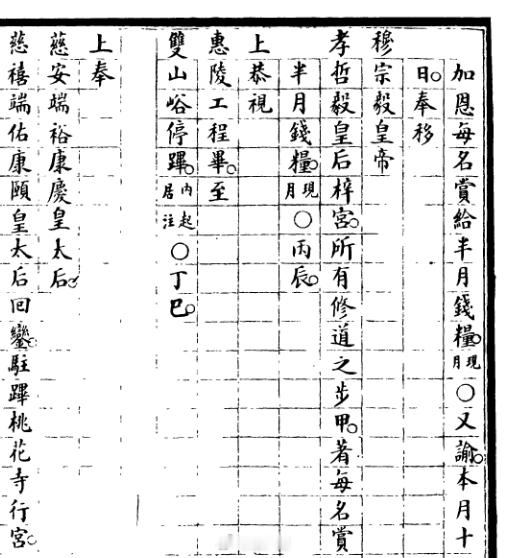 加恩每名賞給半月錢糧。現月○又諭。本月十
日。奉移
穆宗毅皇帝
孝哲毅皇后梓宮。所有修道之步甲。著每名賞
半月錢糧。現月○丙辰。
上恭視
惠陵工程畢。至
雙山峪停蹕。內起居注○丁巳。
上奉
慈安端裕康慶皇太后。
慈禧端佑康頤皇太后回鑾。駐蹕桃花寺行宮。